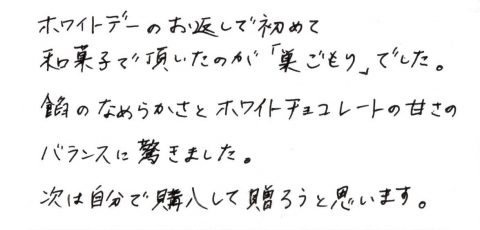 ホワイトデーのお返しで初めて
和菓子で頂いたのが「巣ごもり」でした。
餡のなめらかさとホワイトチョコレートの甘さの
バランスに驚きました。
次は自分で購入して贈ろうと思います。